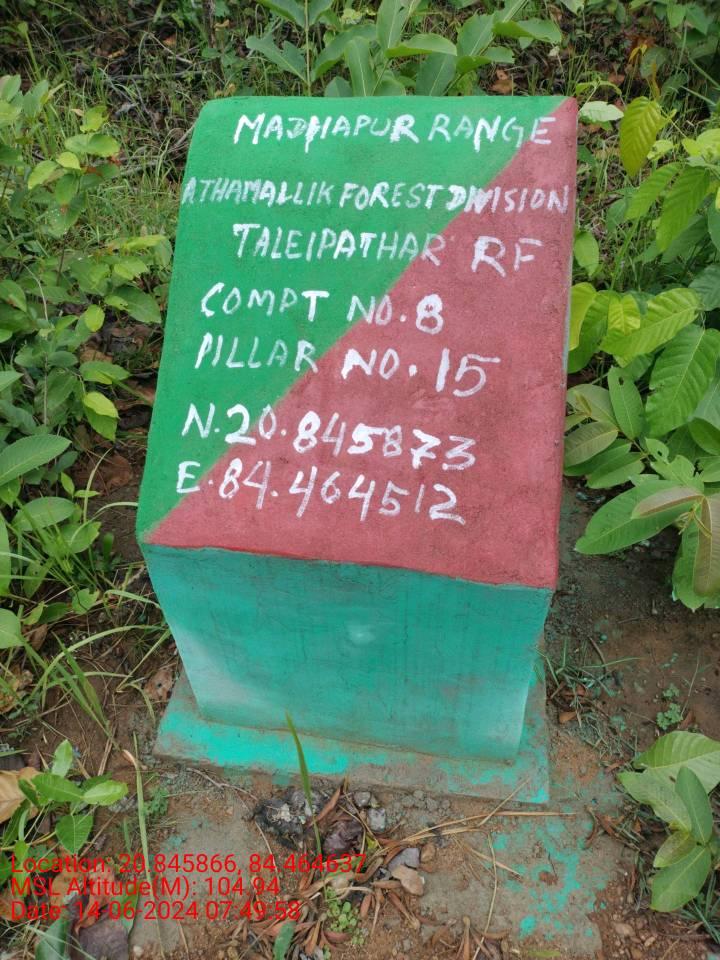 MADHAPUR RANGE
ATHAMALLIK FOREST DIVISION
TALEIPATHAR RF
COMPT NO. 8
PILLAR NO. 15
N. 20.845873
E. 84.464512
Location: 20.845866, 84.464637
MSL Altitude(M): 104.94
Date: 14-06-2024 07:49:58